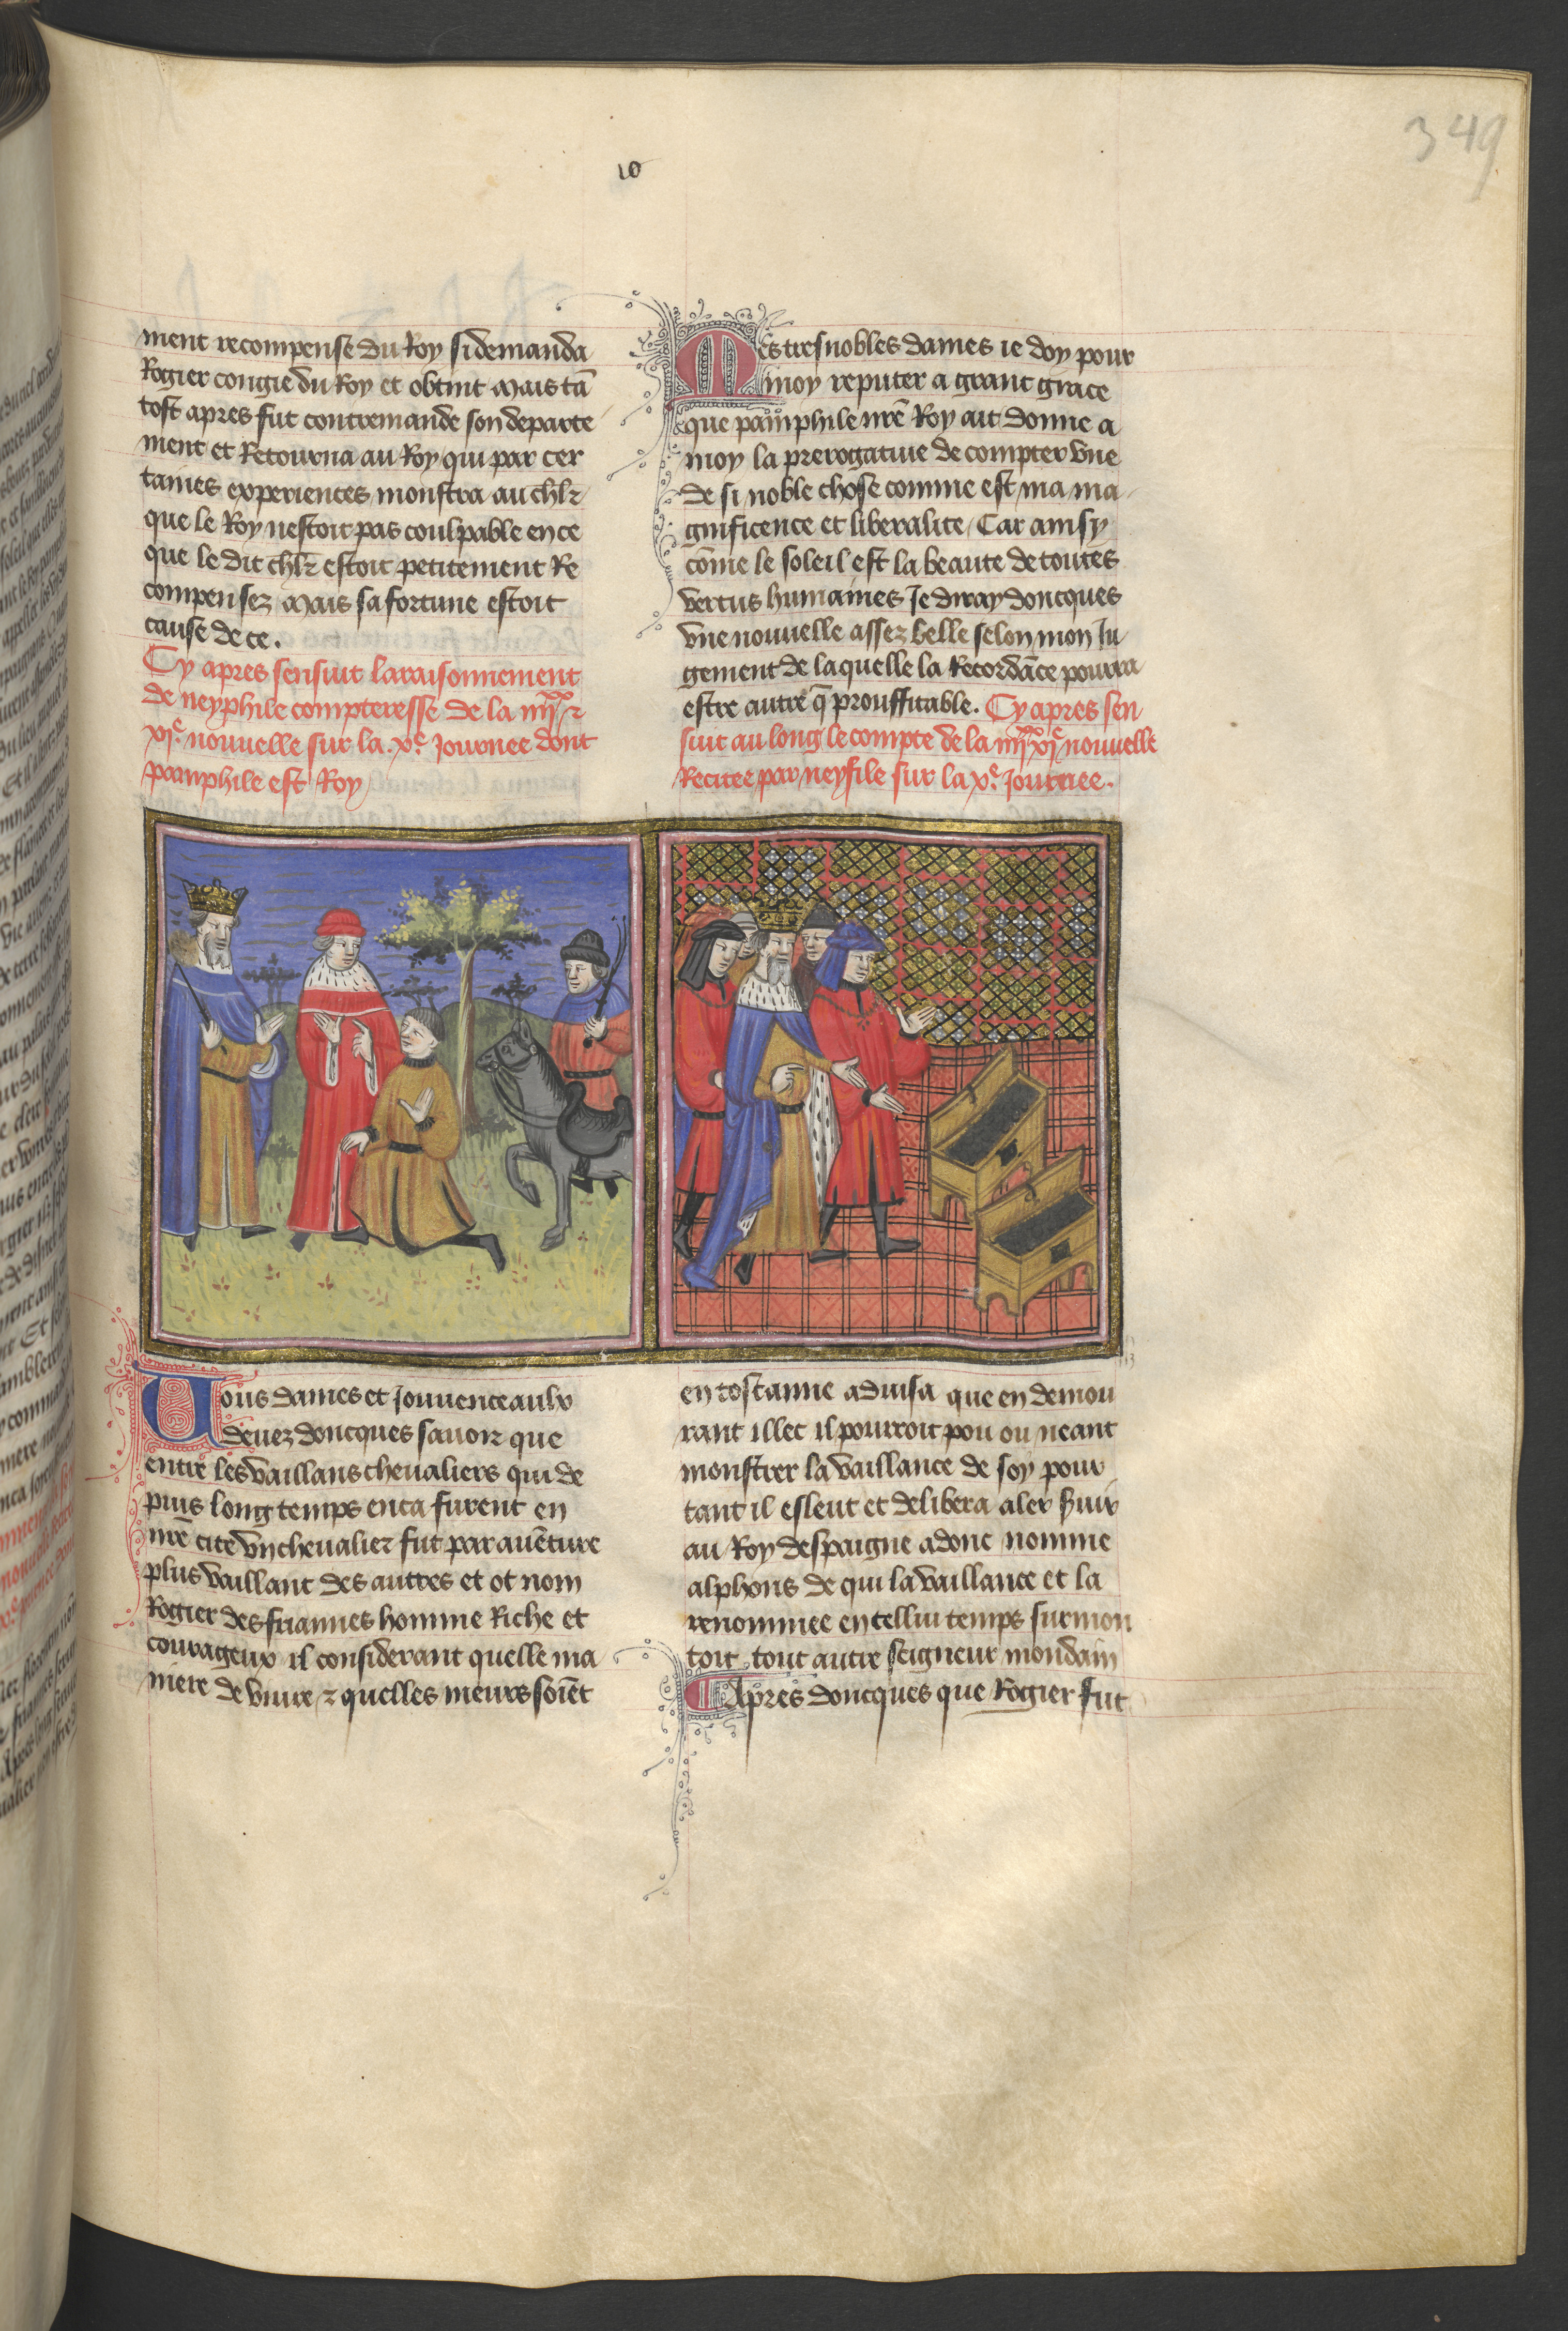 349
10
ment recompense du Roy si demanda
Rogier congie du Roy et obtint Mais tā
tost apres fut contremande son departe
ment et Retourna au Roy qui par cer
taines experiences monstra au chlr
que le Roy nestoit pas coulpable en ce
que le dit chlr estoit petitement Re
compensez Mais sa fortune estoit
cause de ce.
Cy apres sensuit laraisonnement
de neyphile compteresse de la iiiixx et
xie nouuelle sur la .xe. Journee dont
pamphile est Roy
Mes tresnobles dames ie doy pour
moy reputer a grant grace
que pamphile nrē Roy ait donne a
moy la prerogatiue de compter vne
de si noble chose comme est ma ma
gnificence et liberalite / Car ainsy
cōme le soleil est la beaute de toutes
vertus humaines Je diray doncques
vne nouuelle assez belle selon mon Ju
gement de laquelle la Recordāce pourra
estre autre q̄ prouffitable. Cy apres sen
suit au long le compte de la iiiixx xie nouuelle
Recitee par neyfile sur la xe. Journee.
Uous dames et Jouuenceaulx
deuez doncques sauoir que
entre les vaillans cheualiers qui de
puis long temps en ca furent en
nrē cite vn cheualier fut par auēture
plus vaillant des autres et ot nom
Rogier des friannes homme Riche et
courageux il considerant quelle ma
niere de viure et quelles meurs soiēt
en tostanne aduisa que en demou
rant illec il pourroit pou ou neant
monstrer la vaillance de soy pour
tant il esleut et delibera aler seruir
au Roy despaigne adonc nomme
alphons de qui la vaillance et la
renommee en cellui temps surmon
toit tout autre seigneur mondain
Apres doncques que Rogier fut